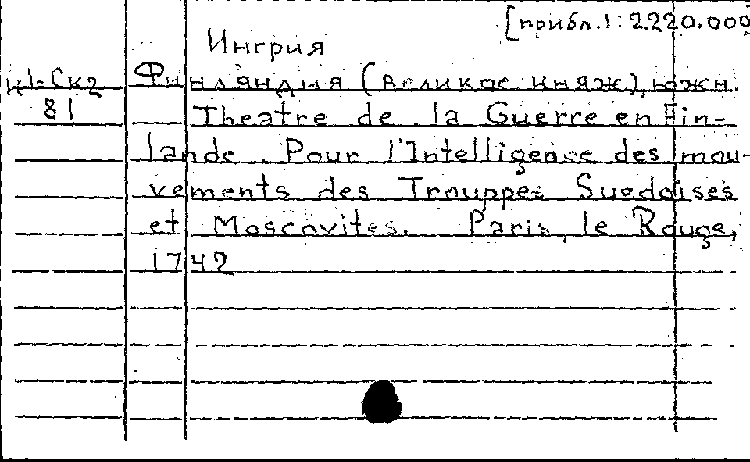 [прибл. 1:2.220.000
Ингрия
Финляндия (Великое княж.), южн.
81
Theatre de la Guerre en Fin-
lande. Pour l'Intelligence des mou-
vements des Trouppes Suedoises
et Moscovites. Paris, le Rouge,
1742